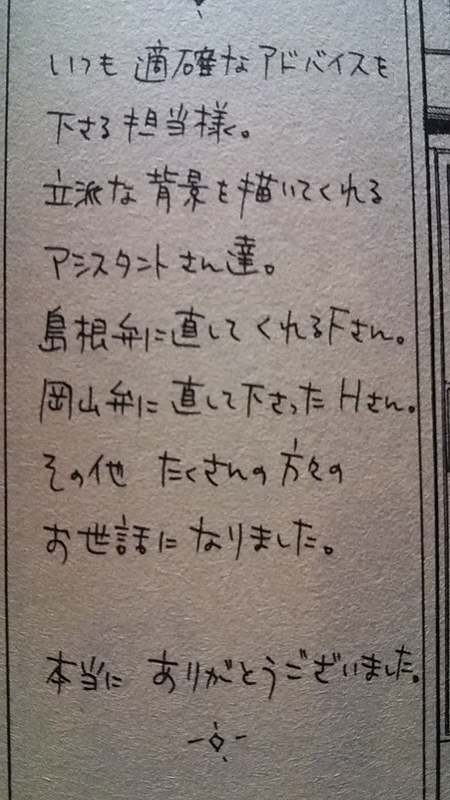 いつも 適確なアドバイスを
下さる 担当様。
立派な 背景を描いてくれる
アシスタントさん達。
島根弁に直してくれるFさん。
岡山弁に 直して下さった Hさん。
その他 たくさんの方々の
お世話に なりました。
本当に ありがとうございました。